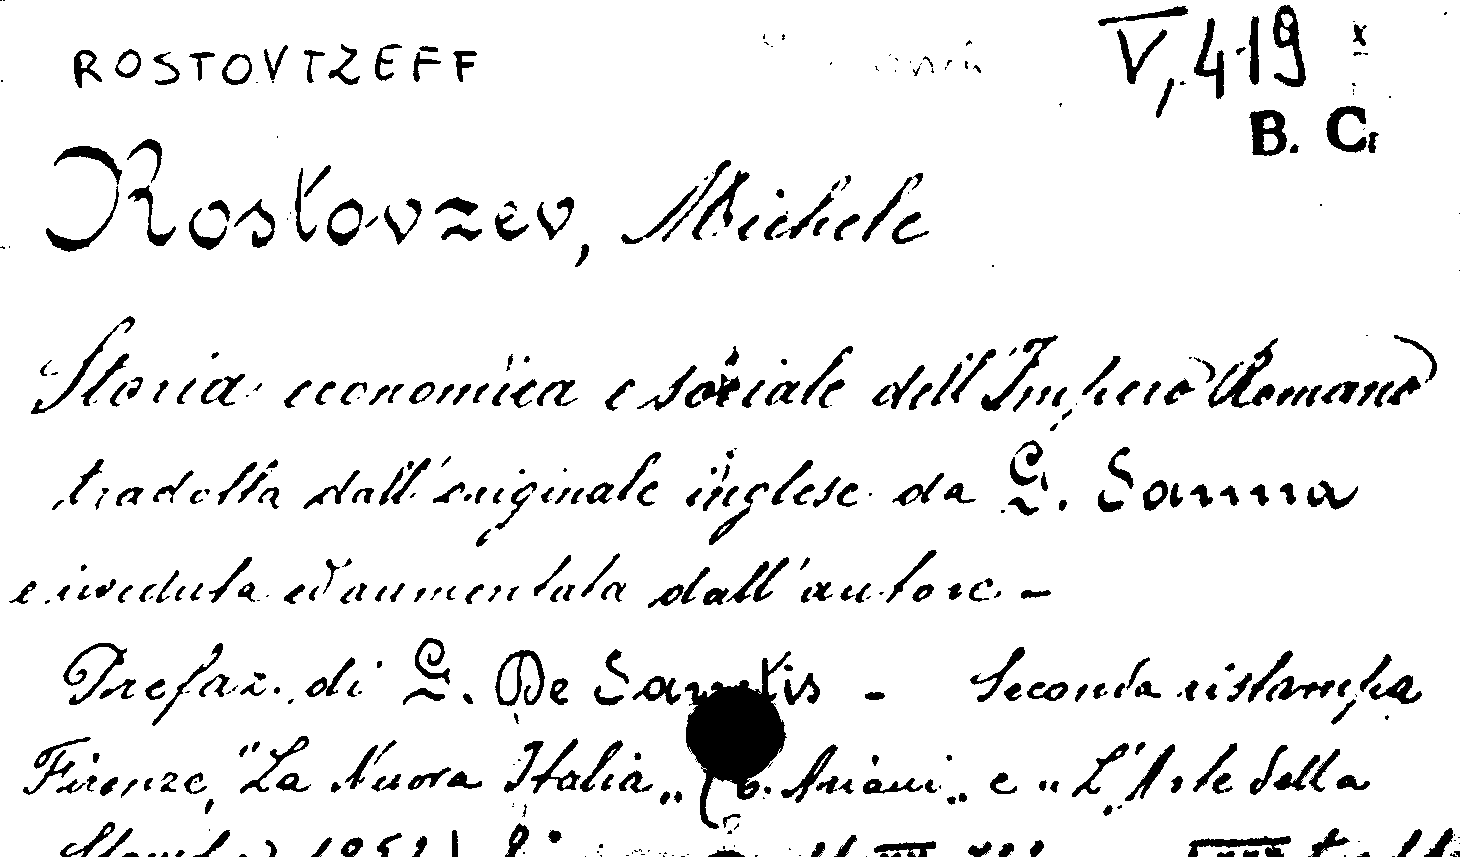 ROSTOVTZEFF V, 419
B. C.
Rostovzev, Michele
Storia economica e sociale dell'Impero Romano
tradotta dall'originale inglese da G. Sanna
e riveduta ed aumentata dall'autore. -
Prefaz. di G. De Sanctis - Seconda ristampa
Firenze, "La Nuova Italia„ ( Ariani„ e "L'Arte della